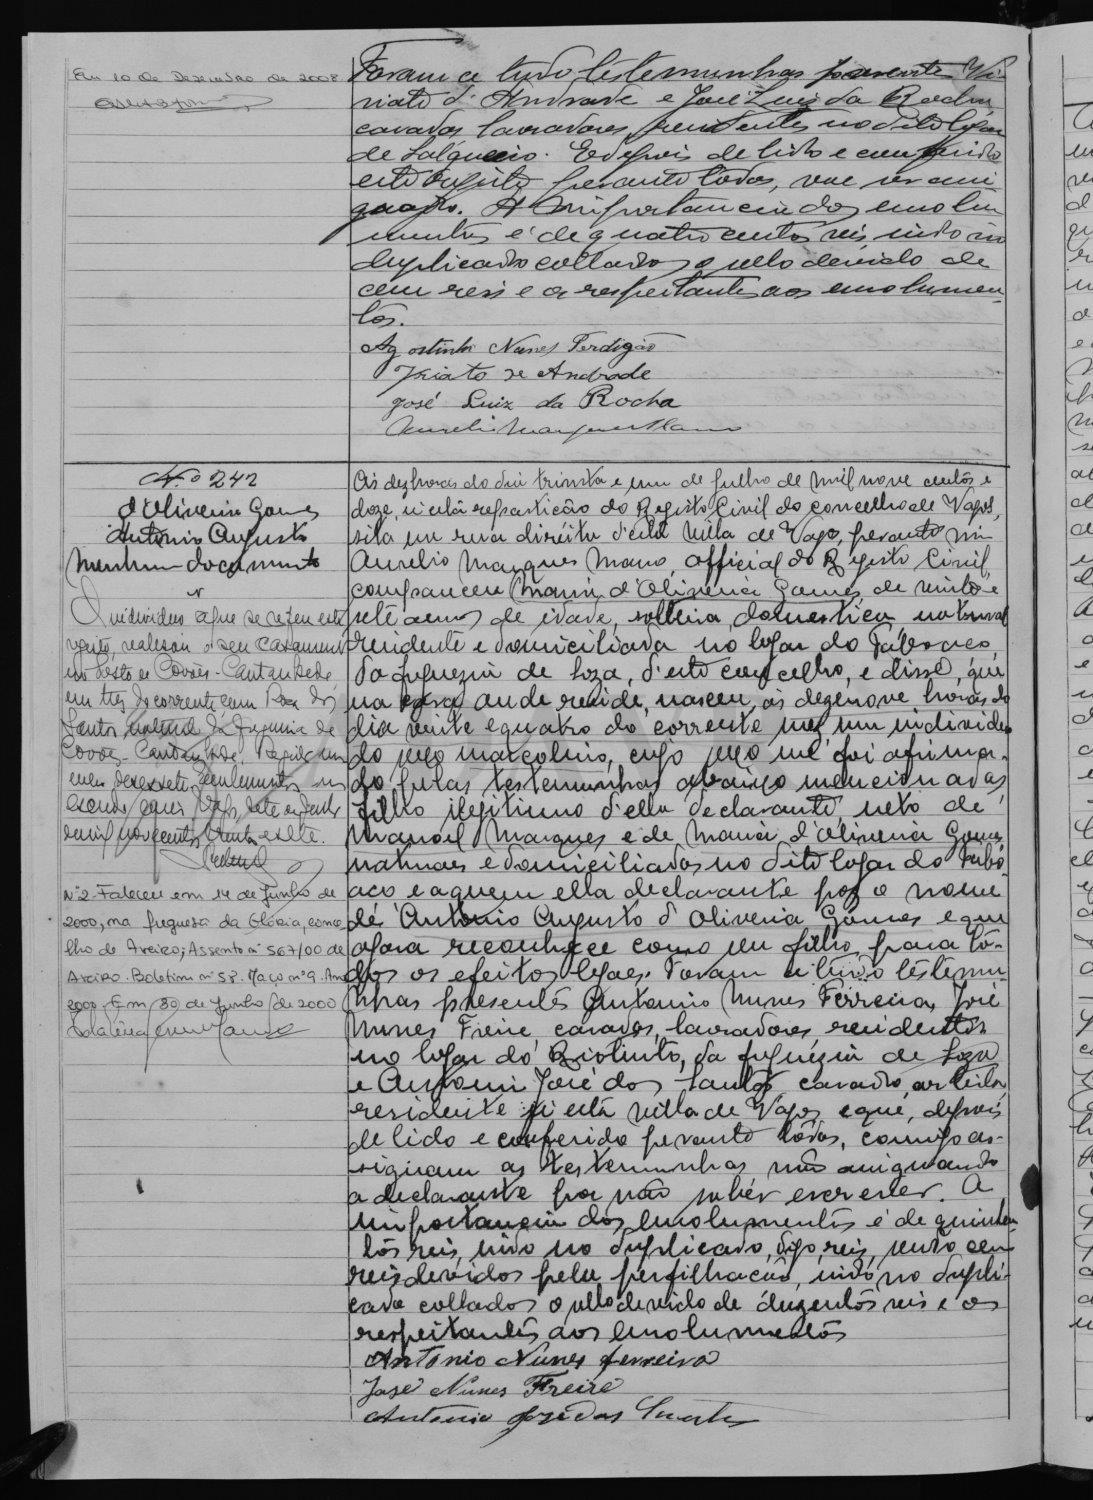 Em 10 de Dezembro de 2008
Foram a tudo testemunhas presentes Vi-
riato d'Andrade e José Luiz da Rocha,
casados, lavradores, residentes no dito logar
de Salgueiro. E depois de lido e conferido
este registo perante todos, vae ser assi-
gnado. A importancia dos emolu-
mentos é de quatrocentos reis, indo no
duplicado collados o sello devido de
cem reis e os respeitantes aos emolumen-
tos.
Agostinho Nunes Perdigão
Viriato de Andrade
José Luiz da Rocha
Aurelio Marques Mano
N.º 242
d'Oliveira Gomes
Antonio Augusto
Nenhum documento
O individuo a que se refere este
registo, realisou o seu casamento
no Posto de Covões - Cantanhede
em tres do corrente com Rosa dos
Santos, natural da freguesia de
Covões - Cantanhede.
mil novecentos trinta e sete.
Nº 2 - Faleceu em 14 de Junho de
2000, na freguesia da Glória, conce-
lho de Aveiro; Assento nº 567/00 de
Aveiro. Boletim nº 58. Maço nº 9. Ano
2000. Em 30 de Junho de 2000
Ás dez horas do dia trinta e um de julho de mil nove centos e
doze, n'esta repartição do Registo Civil do concelho de Vagos,
sita na rua direita d'esta villa de Vagos, perante mim
Aurelio Marques Mano, official do Registo Civil,
compareceu Maria d'Oliveira Gomes, de vinte e
sete annos de idade, solteira, domestica, natural
residente e domiciliada no logar do Fabaco,
da freguezia de Soza, d'este concelho, e disse, que
na casa onde reside, nasceu, ás dezenove horas do
dia vinte e quatro do corrente mez um individuo
do sexo masculino, cujo sexo me foi afirma-
do pelas testemunhas abaixo mencionadas
filho illegitimo d'ella declarante, neto de
Manoel Marques e de Maria d'Oliveira Gomes
naturaes e domiciliados no dito logar do Fabá-
aco e a quem ella declarante poz o nome
de Antonio Augusto d'Oliveira Gomes e que
agora reconhece como seu filho, para tô-
dos os efeitos legaes. Foram a tudo testemu-
nhas presentes Antonio Nunes Ferreira, José
Nunes Freire, casados, lavradores, residentes
no logar do Riotinto, da freguezia de Soza
e Antonio José dos Santos, casado, artista,
residente n'esta villa de Vagos, e que, depois
de lido e conferido perante todos, comigo as-
signam as testemunhas não assignando
a declarante por não saber escrever. A
importancia dos emolumentos é de quinhen-
tos reis, indo no duplicado, digo reis, sendo cem
reis devidos pela perfilhação, indo no dupli-
cado collados o sello devido de duzentos reis e os
respeitantes aos emolumentos
Antonio Nunes ferreira
José Nunes Freire
Antonio José dos Santos